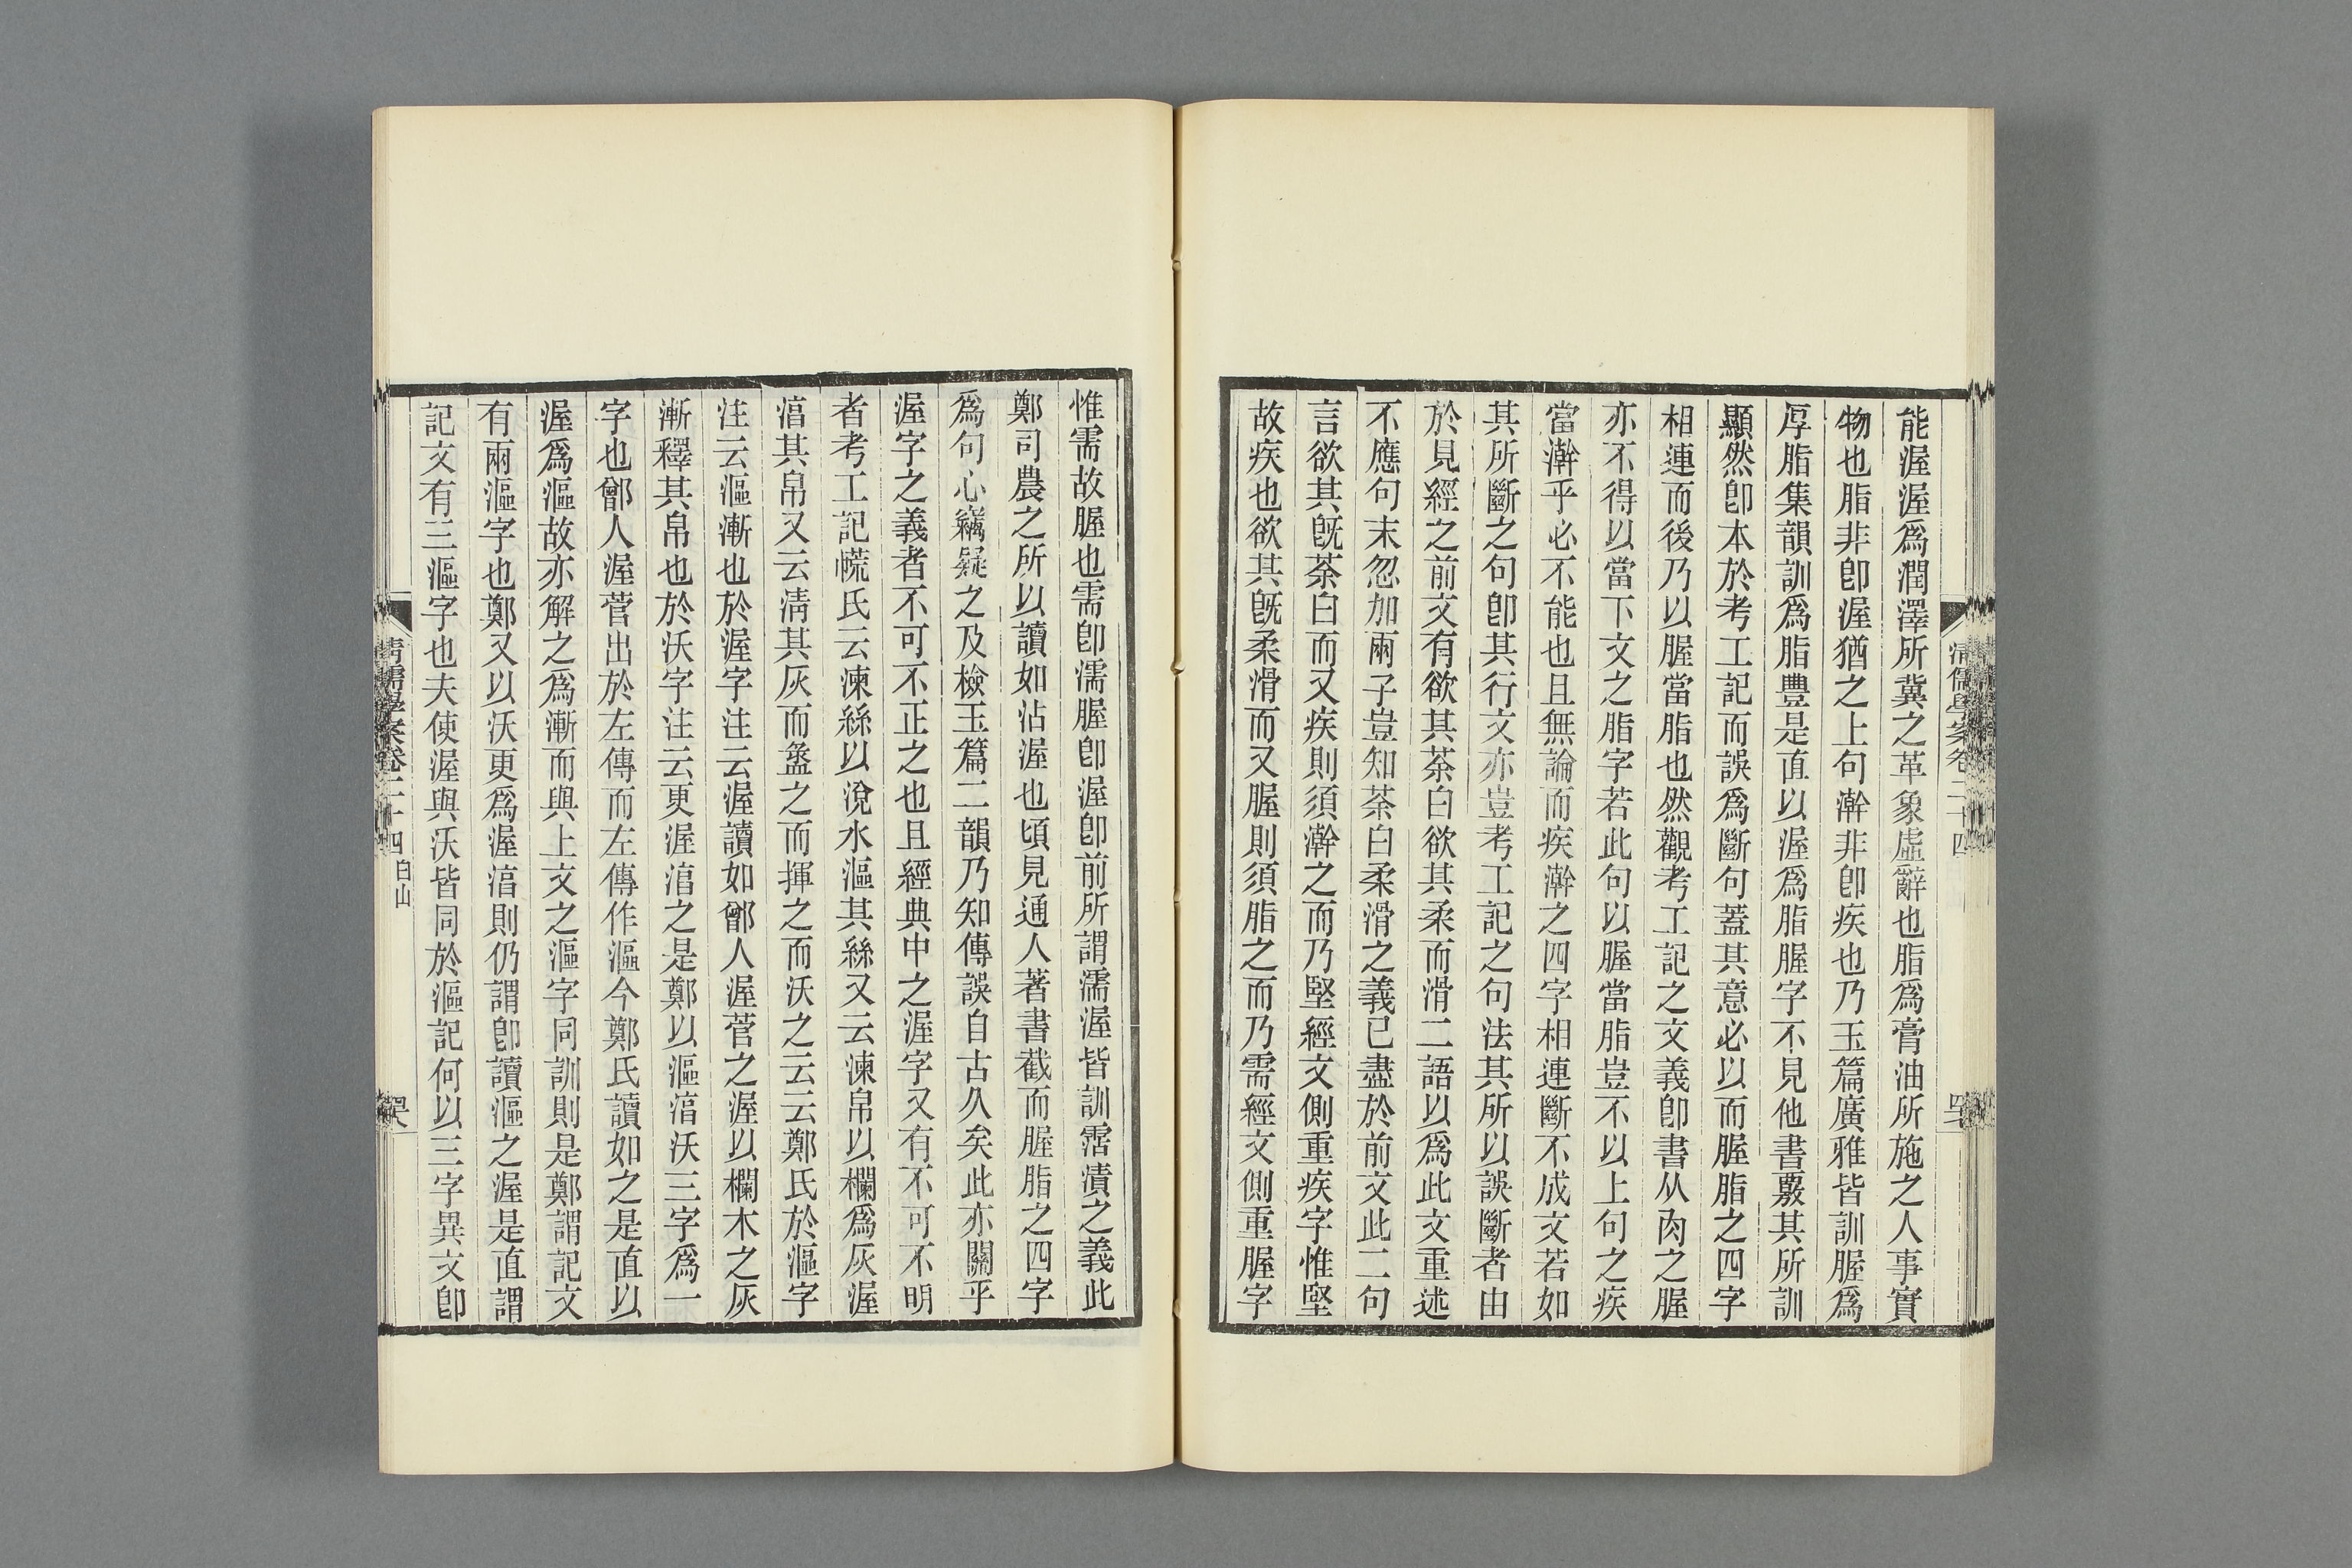 能渥渥爲潤澤所冀之革象虛辭也脂爲膏油所施之人事實
物也脂非卽渥猶之上句澣非卽疾也乃玉篇廣雅皆訓腛爲
厚脂集韻訓爲脂豊是直以渥爲脂腛字不見他書覈其所訓
顯然卽本於考工記而誤爲斷句蓋其意必以而腛脂之四字
相連而後乃以腛當脂也然觀考工記之文義卽書从肉之腛
亦不得以當下文之脂字若此句以腛當脂豈不以上句之疾
當澣乎必不能也且無論而疾澣之四字相連斷不成文若如
其所斷之句卽其行文亦豈考工記之句法其所以誤斷者由
於見經之前文有欲其荼白欲其柔而滑二語以爲此文重述
不應句末忽加兩子豈知荼白柔滑之義已盡於前文此二句
言欲其旣荼白而又疾則須澣之而乃堅經文側重疾字惟堅
故疾也欲其旣柔滑而又腛則須脂之而乃需經文側重腛字
惟需故腛也需卽濡腛卽渥卽前所謂濡渥皆訓霑漬之義此
鄭司農之所以讀如沾渥也頃見通人著書截而腛脂之四字
爲句心竊疑之及檢玉篇二韻乃知傳誤自古久矣此亦關乎
渥字之義者不可不正之也且經典中之渥字又有不可不明
者考工記㡛氏云湅絲以涗水漚其絲又云湅帛以欄爲灰渥
淳其帛又云淸其灰而盝之而揮之而沃之云云鄭氏於漚字
注云漚漸也於渥字注云渥讀如鄫人渥菅之渥以欄木之灰
漸釋其帛也於沃字注云更渥淳之是鄭以漚淳沃三字爲一
字也鄫人渥菅出於左傳而左傳作漚今鄭氏讀如之是直以
渥爲漚故亦解之爲漸而與上文之漚字同訓則是鄭謂記文
有兩漚字也鄭又以沃更爲渥淳則仍謂卽讀漚之渥是直謂
記文有三漚字也夫使渥與沃皆同於漚記何以三字異文卽
清儒學案卷二十四 白山